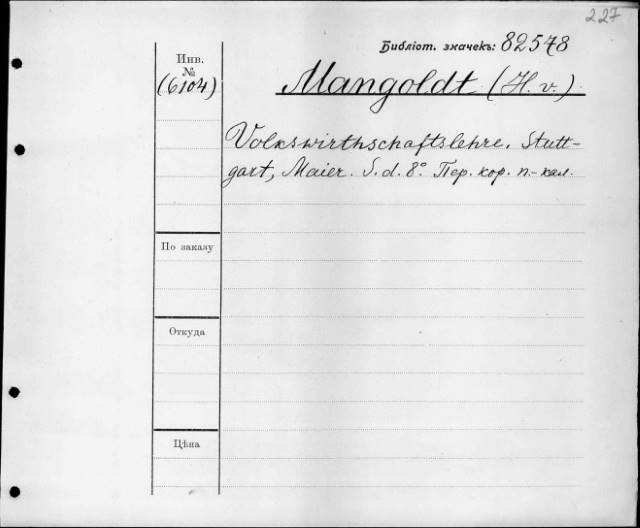 227
Библіот. значекъ: 82548
Инв.
№
(6104)
Mangoldt (H. v.)
Volkswirthschaftslehre. Stutt-
gart, Maier. S. d. 8° Пер. кор. п.-кал.
По заказу
Откуда
Цѣна